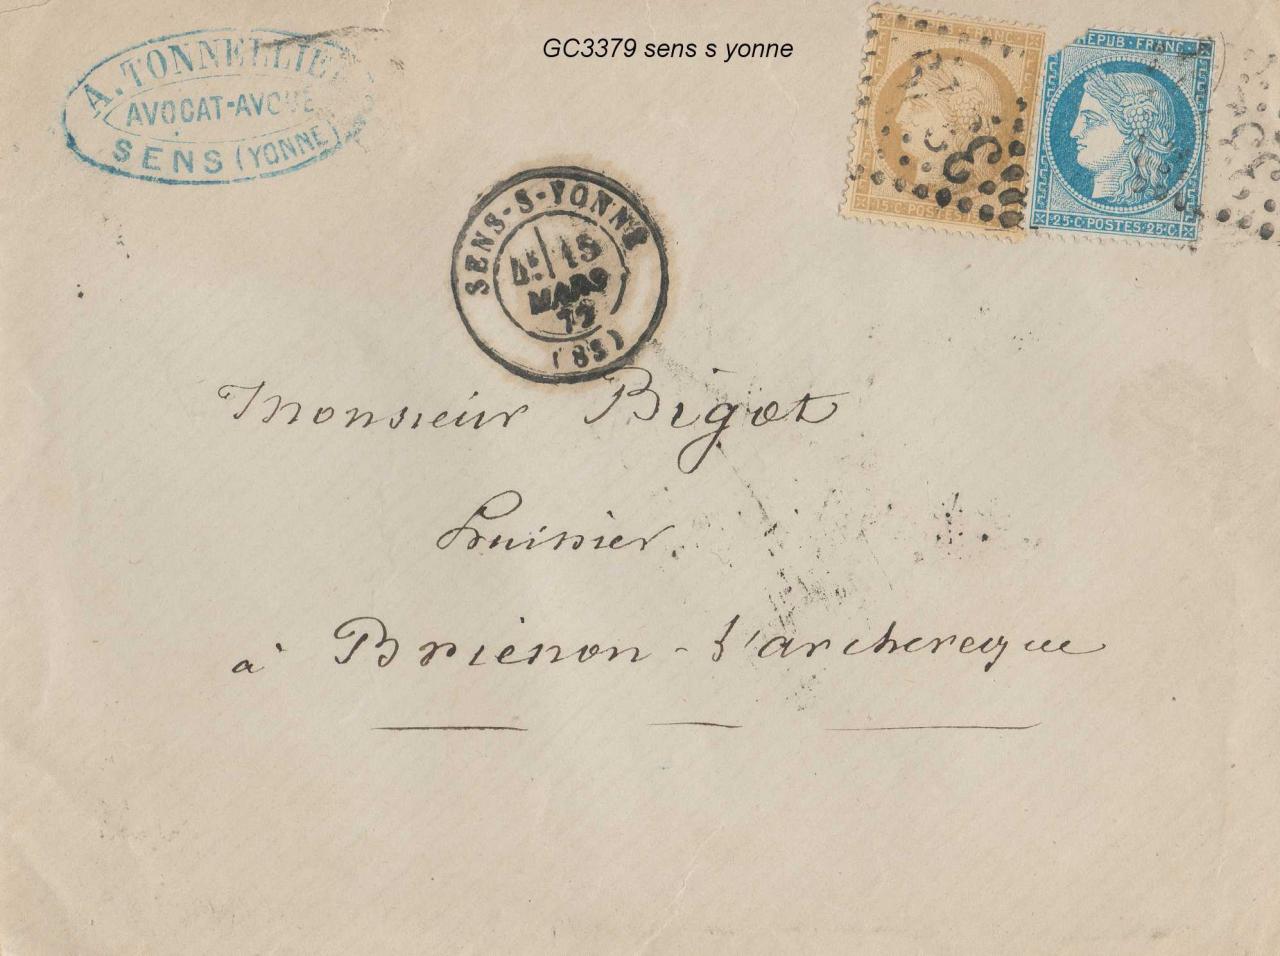 GC3379 sens s yonne
A. TONNELLIER
AVOCAT-AVOUÉ
SENS (YONNE)
REPUB·FRANC
15·C·POSTES
25·C·POSTES·25·C
SENS-S-YONNE
MARS
72
Monsieur Bigot
huissier
à Briénon-l'archeveque